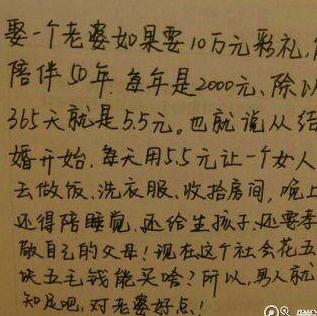 娶一个老婆如果要10万元彩礼,
陪伴50年 每年是2000元、除以
365天就是5.5元。也就说从结
婚开始.每天用5.5元让一个女人
去做饭、洗衣服、收拾房间,晚上
还得陪睡觉.还给生孩子.还要孝
敬自己的父母!现在这个社会花五
块五毛钱能买啥?所以,男人就
知足吧.对老婆好点!